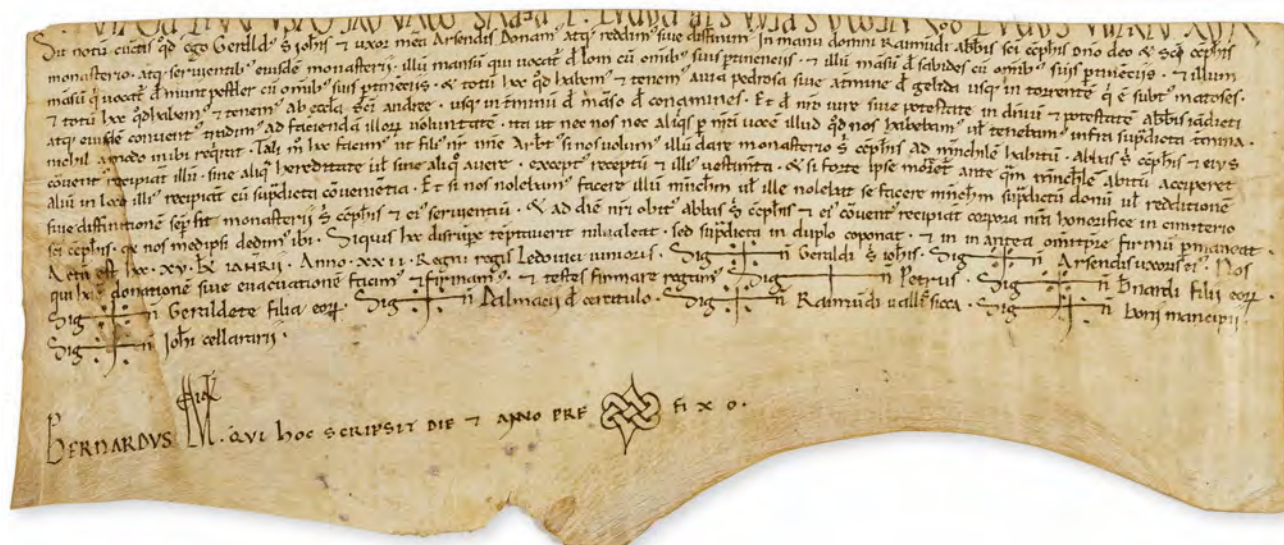 Sit notū cunctis qd ego Gerałd' s̄ ioħis ⁊ uxor mea Arsendis Donamꝰ atq; reddimꝰ siue diffinimꝰ In manu domni Raimūdi abb̄is sc̄i cc̄phis dn̄o deo & sc̄i cc̄phis
monasterio. atq; seruientibꝰ eiusdē monasterii. illū mansū qui uocat' đ lom cū omibꝰ suis ptinenciis. ⁊ illū māsū đ sabides cū omibꝰ suis ptinēciis. ⁊ illum
māsū q' uocat' đ munt pestler cū omibꝰ suis ptinēciis. & totū hoc qd habemꝰ ⁊ tenemꝰ a uia pedrosa siue a tmine đ gelida usq; in torrente q' ē subtꝰ matoses.
⁊ totū hoc qd habemꝰ ⁊ tenemꝰ ab ecclā sc̄i andree. usq; in tminū đ māso đ concamines. Et đ nr̄o iure siue potestate in diuinū ⁊ potestatē abb̄is iādicti
atq; eiusdē conuentꝰ tradimꝰ ad faciendā illorꝝ uoluntatē. ita ut nec nos nec aliq's p nr̄ā uocē illud qd nos habebamꝰ ut tenebamꝰ infra sup̄dicta tmina.
nichil amodo in ibi req'rat. Tali m̄ hoc facimꝰ ut filiꝰ nr̄ nn̄e Arb't' si nos uolumꝰ illū dare monasterio s̄ cc̄phis ad mn̄chilē habitū. abbas s̄ cc̄phis ⁊ eiꝰ
cōuentꝰ recipiat illū. sine aliq' hereditate ul sine aliq' auere. except' receptū ⁊ illiꝰ uestim̄ta. & si forte ipse moret' ante qm mn̄chilē abitū acciperet
aliū in loco illiꝰ recipiāt cū sup̄dicta cōuenientia. Et si nos nolebamꝰ facere illū mn̄chm ul ille nolebat se facere mn̄chm sup̄dictū donū ul redditionē
siue diffinitionē sep̄ sit monasterii s̄ cc̄phis ⁊ eiꝰ seruientiū. & ad diē nr̄i obitꝰ abbas s̄ cc̄phis ⁊ eiꝰ cōuentꝰ recipiat corpora nr̄a honorifice in cimiterio
sc̄i cc̄phis. qe nos medipsi dedimꝰ ibi. Siquis hoc disrūpe tēptauerit n̄ ualeat. sed sup̄dicta in duplo cōponat. ⁊ in in antea om̄i tpre firmū pmaneat.
Actū est hoc. XV. kł ianr̄ii. Anno. XXII. Regni regis Ledouici iunioris. Sig n̄ Geraldi s̄ ioħis. Sig n̄ Arsendis uxoris eiꝰ. Nos
qui hāc donationē siue euacuationē facimꝰ ⁊ firmamꝰ. ⁊ testes firmare rogamꝰ. Sig n̄ Petrus. Sig n̄ B̄nardi filii eorꝝ.
Sig n̄ Geraldete filia eorꝝ. Sig n̄ Dalmacii đ ceruilulo. Sig n̄ Raimūdi uallsicca. Sig n̄ boni mancipii.
Sig n̄ Ioħi cellararii.
BERNARDVS M. QVI hOC SCRIPSIT DIE ⁊ ANNO PRE FIXO.